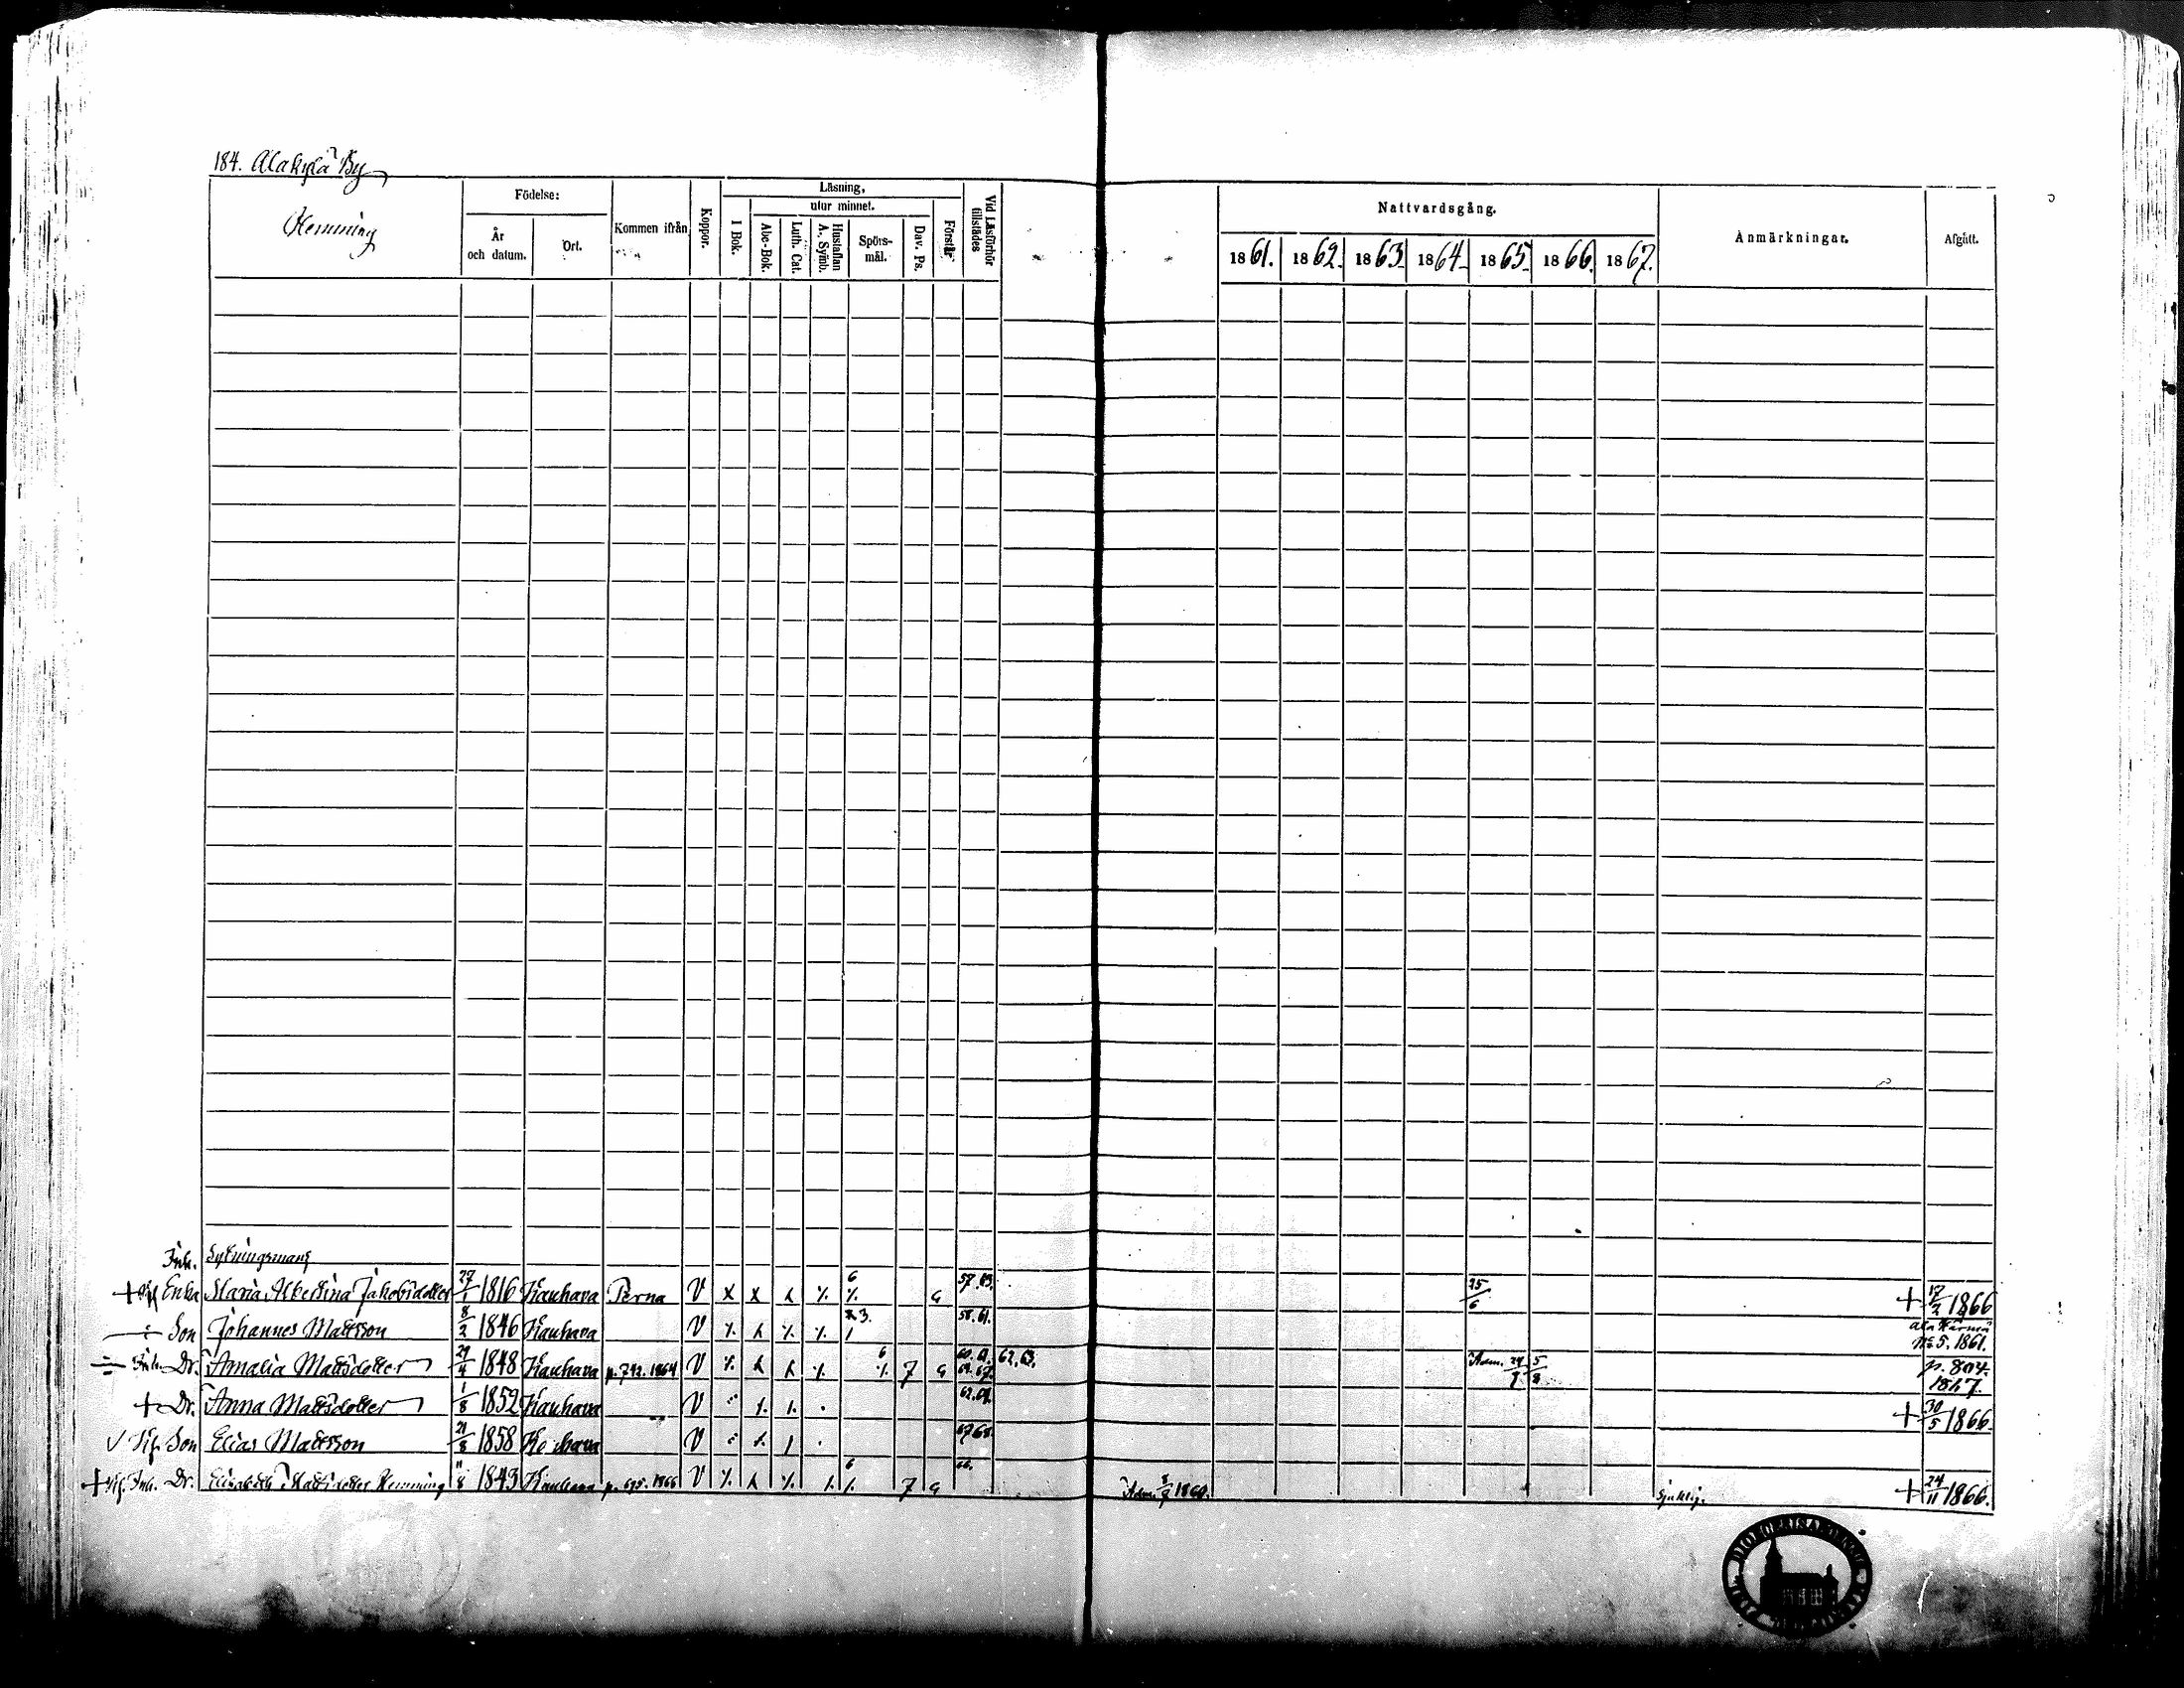 184. Alakylä By
Hemming
Födelse:
År och datum.
Ort.
Kommen ifrån
Koppor.
Läsning,
utur minnet.
I Bok.
Abc-Bok.
Luth. Cat.
Hustaflan A. Symb.
Spörsmål.
Dav. Ps.
Förstår
Vid Läsförhör tillstädes
Nattvardsgång.
1861. 1862. 1863. 1864. 1865. 1866. 1867.
Anmärkningar.
Afgått.
Inh. Sytningsmans
+ Enka Maria Albertina Jakobsdotter 27/1 1816 Kauhava Perna V x x 6 57. 63. 25/6 + 17/2 1866
Son Johannes Mattsson 8/2 1846 Kauhava V 3. 58. 61. Ala Härmä No 5. 1861.
Inh. Dr. Amalia Mattsdotter 29/4 1848 Kauhava p. 742. 1864 V 6 7 62. 63. Adm. 5/8 p. 804. 1867.
+ Dr. Anna Mattsdotter 1/8 1852 Kauhava V + 30/5 1866.
Son Elias Mattsson 21/8 1858 V
+ Inh. Dr. Elisabeth Mattsdotter Hemming 11/8 1843 Kauhava p. 695. 1866 V 6 7 66. Adm. 1860. Sjuklig. + 24/11 1866.